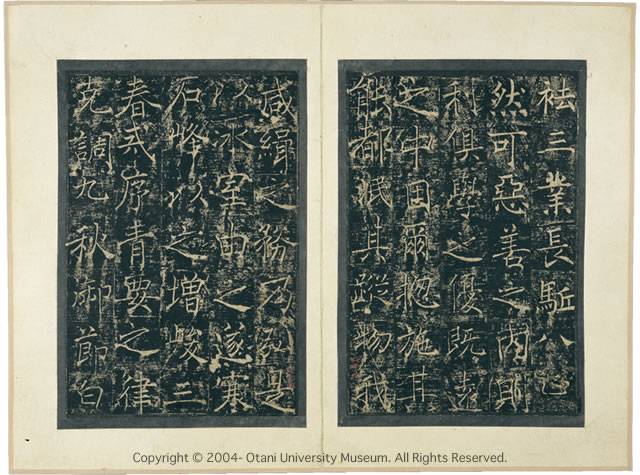 祛三業長駈八
然可惡善之內即
利俱學之優既遠
之中因爾揔施甘
都泯其蹤物我
咸緝之務乃弘是
以冰室由之遂寒
石峰以之增峻三
春式序青要之律
克調九秋御節白
Copyright © 2004- Otani University Museum. All Rights Reserved.